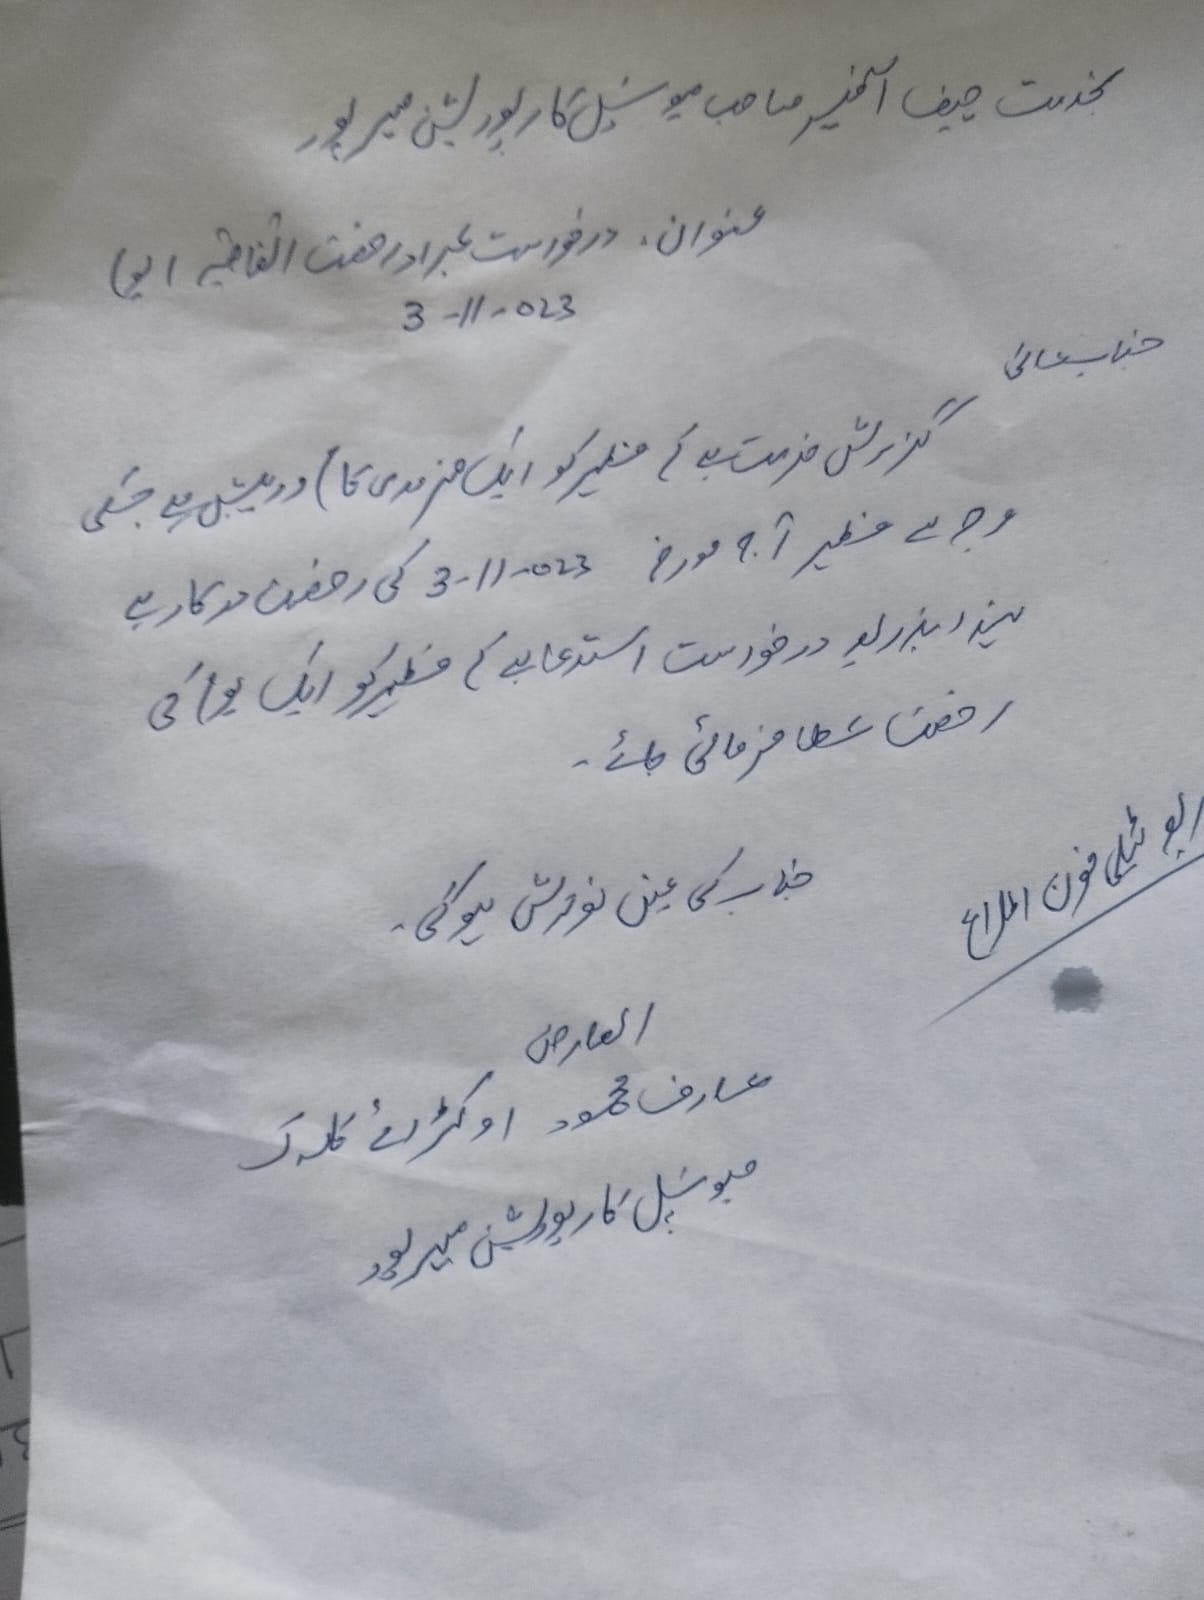 بخدمت چیف آفیسر صاحب میونسپل کارپوریشن میرپور
عنوان: درخواست بمراد رخصت اتفاقیہ 1 یوم
3-11-023
جناب عالی
گزارش خدمت ہے کہ مظہر کو ایک ضروری کام درپیش ہے جسکی
وجہ سے مظہر آج مورخہ 3-11-023 کی رخصت درکار ہے
لہذا بذریعہ درخواست استدعا ہے کہ مظہر کو ایک یوم کی
رخصت عطا فرمائی جائے۔
جناب کی عین نوازش ہوگی۔
ٹیلی فون اطلاع
العارض
عارف محمود اوکٹرائے کلرک
میونسپل کارپوریشن میرپور